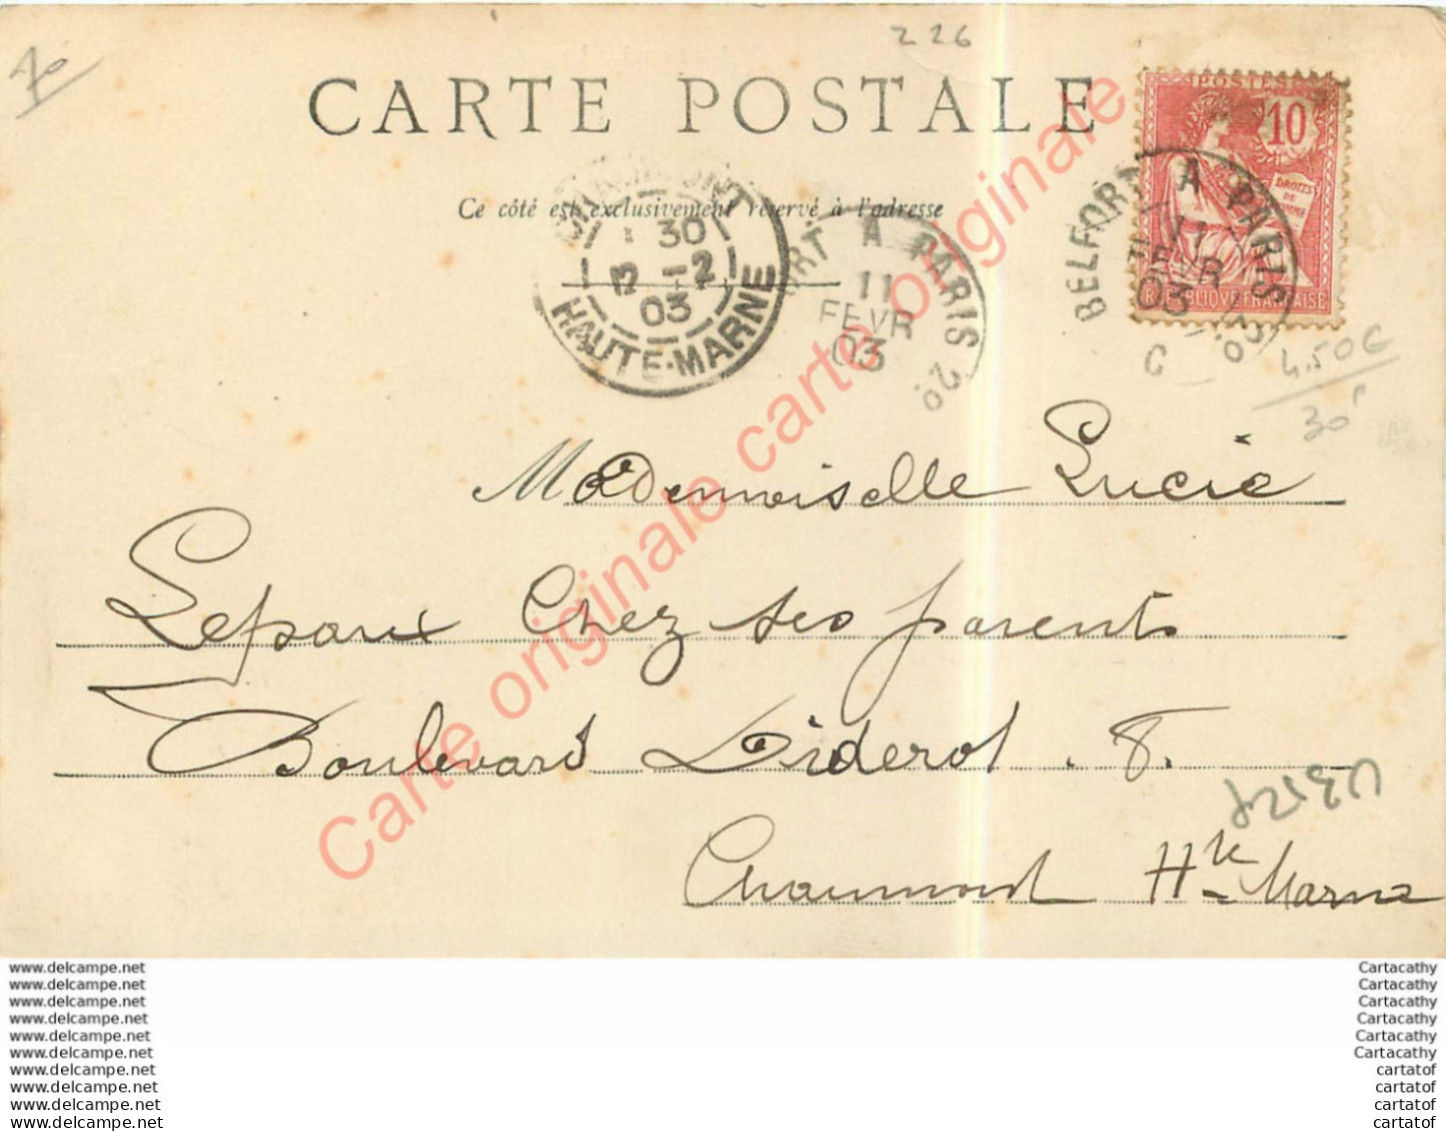 70
226
CARTE POSTALE
Ce côté est exclusivement réservé à l'adresse
POSTES
10
DROITS DE
RÉPUBLIQUE FRANÇAISE
BELFORT A PARIS 2°
11
FEVR
03
CHAUMONT
30
12 -2
03
HAUTE-MARNE
BELFORT A PARIS 2°
11
FEVR
03
4.50€
30
Mademoiselle Lucie
Lepaux Chez ses parents
Boulevard Diderot . 8.
Chaumont Hte Marne
Carte originale carte originale
www.delcampe.net
www.delcampe.net
www.delcampe.net
www.delcampe.net
www.delcampe.net
www.delcampe.net
www.delcampe.net
www.delcampe.net
www.delcampe.net
www.delcampe.net
Cartacathy
Cartacathy
Cartacathy
Cartacathy
Cartacathy
Cartacathy
cartatof
cartatof
cartatof
cartatof